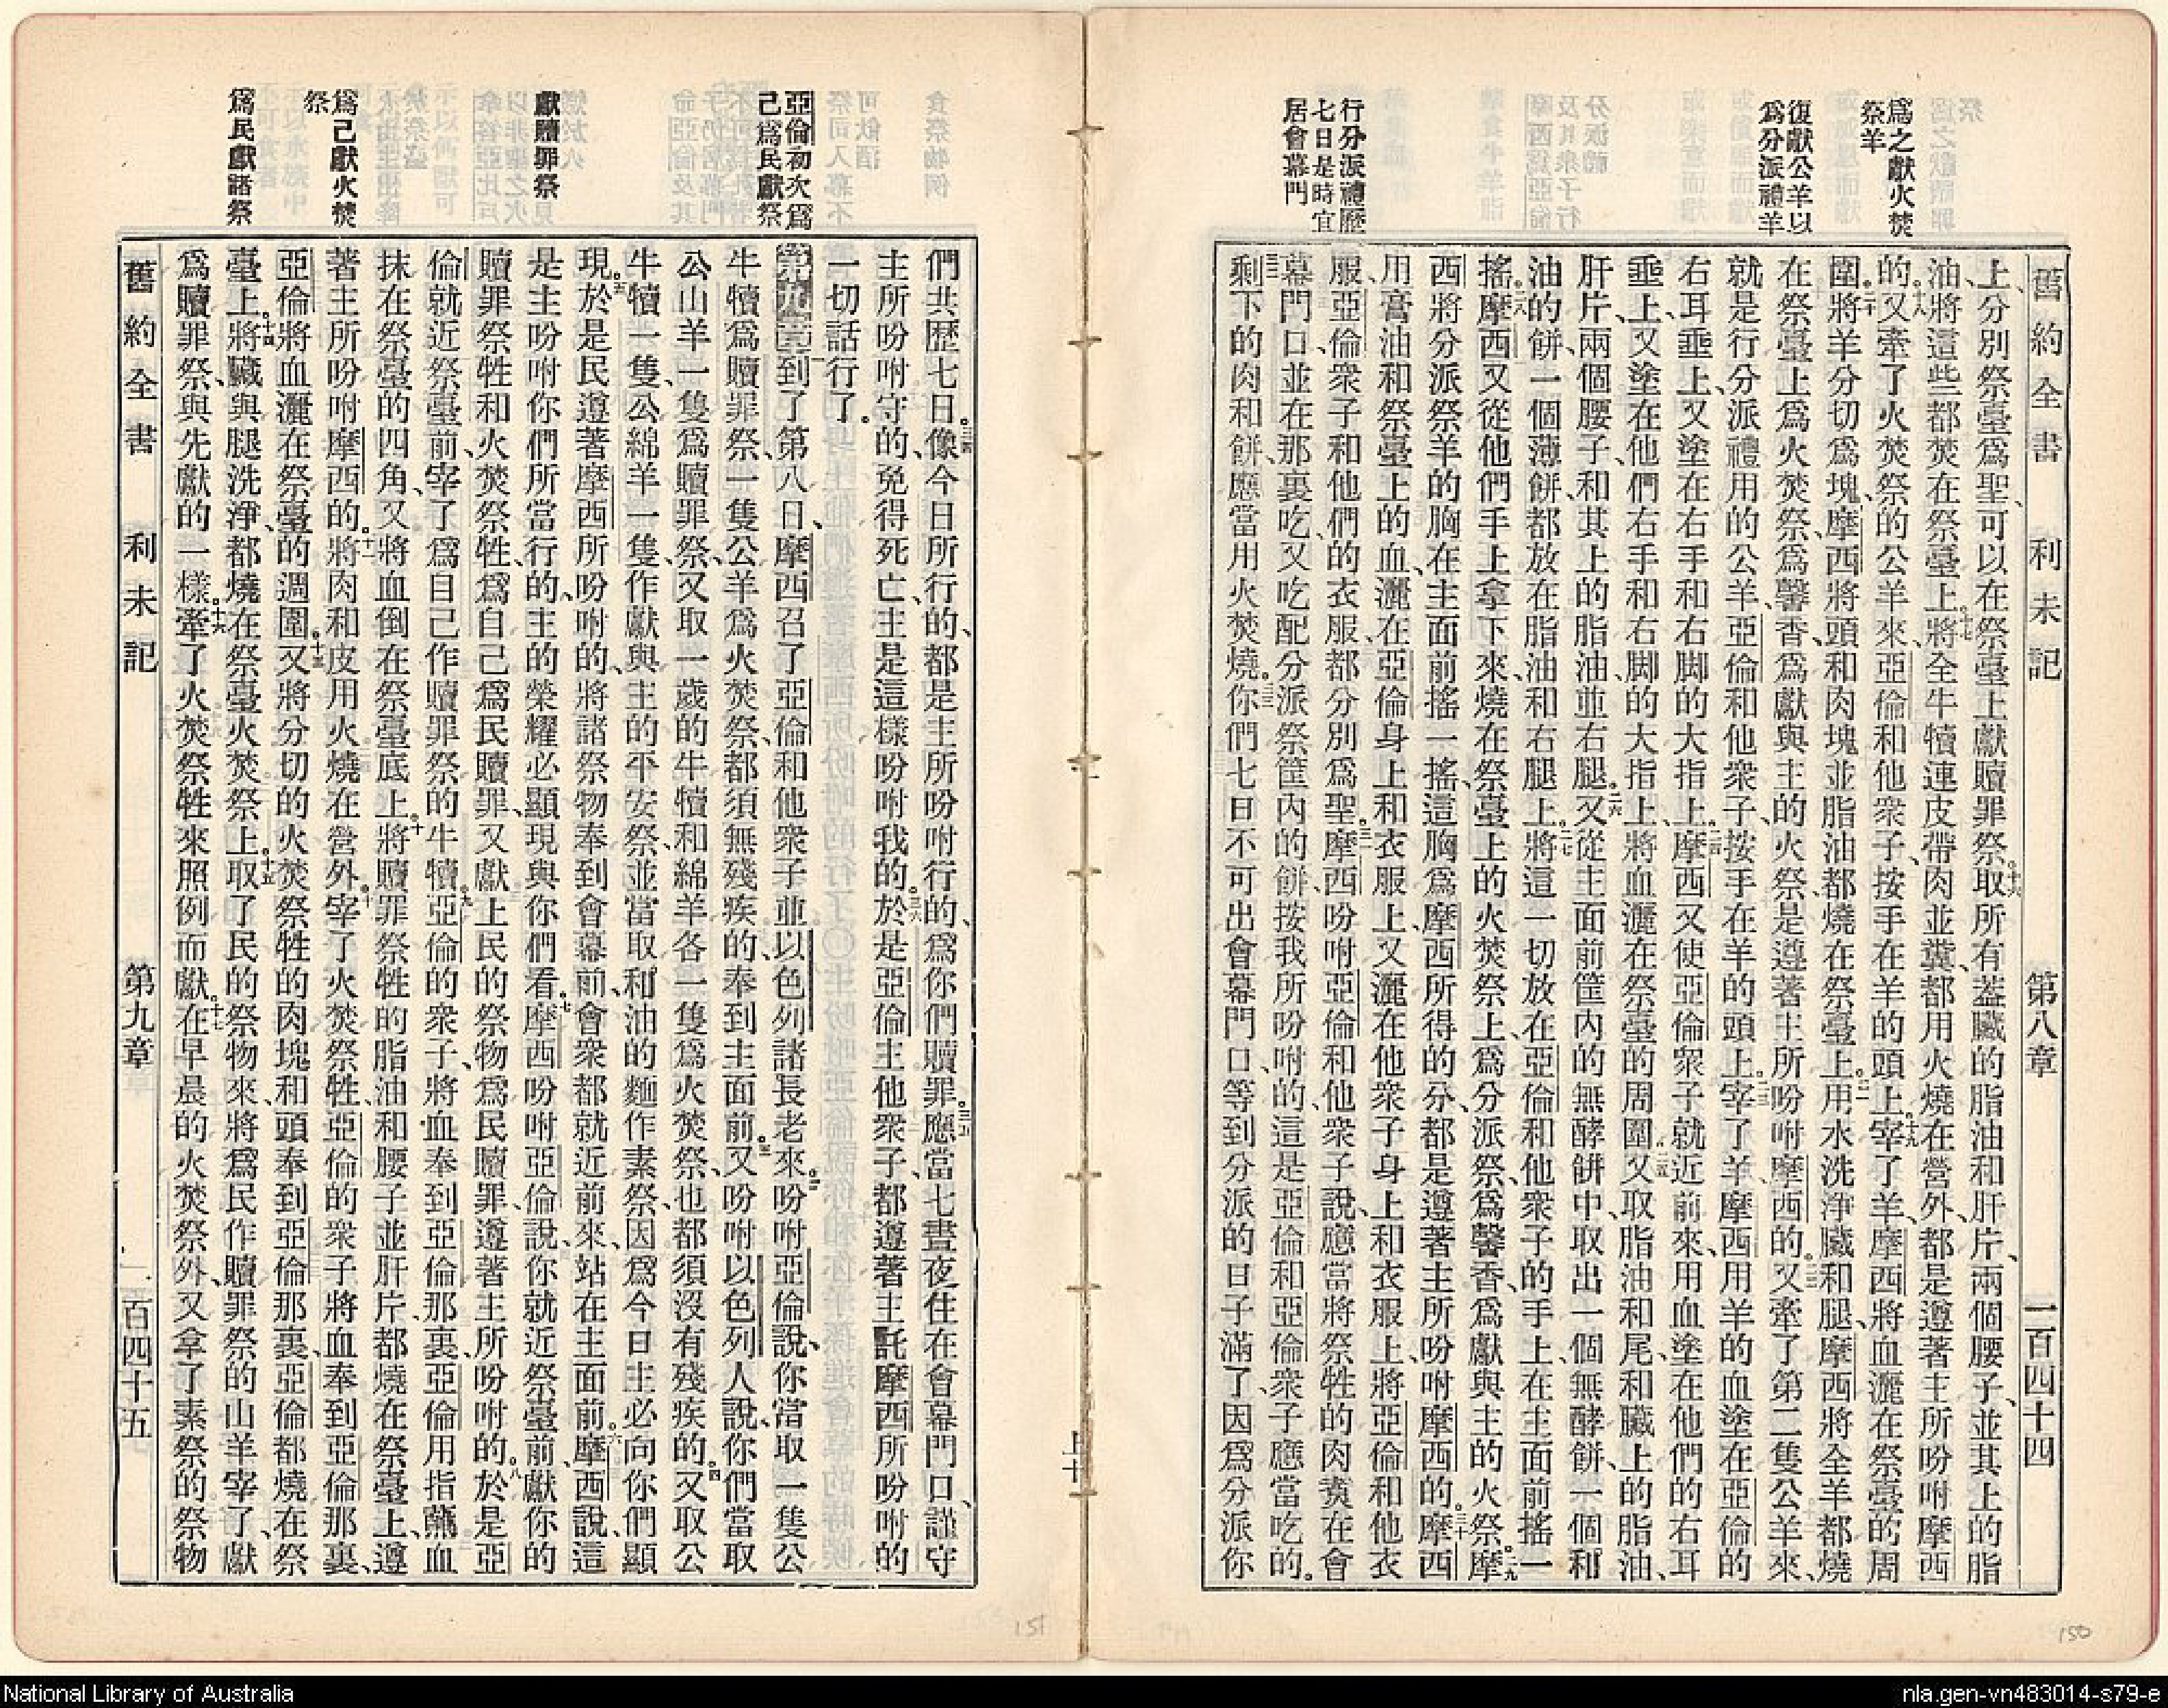 舊約全書 利未記 第八章 一百四十四
爲之獻火焚
祭羊
復獻公羊以
爲分派禮羊
行分派禮歷
七日是時宜
居會幕門
上、分別祭臺爲聖、可以在祭臺上獻贖罪祭。十六取所有蓋臟的脂油和肝片、兩個腰子、並其上的脂
油、將這些都焚在祭臺上。十七將全牛犢連皮帶肉並糞、都用火燒在營外、都是遵著主所吩咐摩西
的。十八又牽了火焚祭的公羊來、亞倫和他衆子、按手在羊的頭上。十九宰了羊、摩西將血灑在祭臺的周
圍。二十將羊分切爲塊、摩西將頭和肉塊並脂油都燒在祭臺上。二一用水洗淨臟和腿、摩西將全羊都燒
在祭臺上爲火焚祭、爲馨香、爲獻與主的火祭、是遵著主所吩咐摩西的。二二又牽了第二隻公羊來、
就是行分派禮用的公羊、亞倫和他衆子、按手在羊的頭上。二三宰了羊、摩西用羊的血塗在亞倫的
右耳垂上、又塗在右手和右脚的大指上。二四摩西又使亞倫衆子就近前來、用血塗在他們的右耳
垂上、又塗在他們右手和右脚的大指上、將血灑在祭臺的周圍。二五又取脂油和尾、和臟上的脂油、
肝片、兩個腰子、和其上的脂油、並右腿。二六又從主面前筐內的無酵餅中、取出一個無酵餅、一個和
油的餅、一個薄餅、都放在脂油和右腿上。二七將這一切放在亞倫和他衆子的手上、在主面前搖一
搖。二八摩西又從他們手上拿下來、燒在祭臺上的火焚祭上、爲分派祭、爲馨香、爲獻與主的火祭。二九摩
西將分派祭羊的胸、在主面前搖一搖、這胸爲摩西所得的分、都是遵著主所吩咐摩西的。三十摩西
用膏油和祭臺上的血、灑在亞倫身上和衣服上、又灑在他衆子身上和衣服上、將亞倫和他衣
服、亞倫衆子和他們的衣服、都分別爲聖。三一摩西吩咐亞倫和他衆子說、應當將祭牲的肉煑在會
幕門口、並在那裏吃、又吃配分派祭筐內的餅、按我所吩咐的、這是亞倫和亞倫衆子應當吃的。
三二剩下的肉和餅、應當用火焚燒。三三你們七日不可出會幕門口、等到分派的日子滿了、因爲分派你
亞倫初次爲
己爲民獻祭
獻贖罪祭
爲己獻火焚
祭
爲民獻諸祭
們共歷七日。三四像今日所行的、都是主所吩咐行的、爲你們贖罪。三五應當七晝夜住在會幕門口、謹守
主所吩咐守的、免得死亡、主是這樣吩咐我的。三六於是亞倫主他衆子、都遵著主託摩西所吩咐的
一切話行了。
第九章到了第八日、摩西召了亞倫和他衆子、並以色列諸長老來。二吩咐亞倫說、你當取一隻公
牛犢爲贖罪祭、一隻公羊爲火焚祭、都須無殘疾的、奉到主面前。三又吩咐以色列人說、你們當取
公山羊一隻爲贖罪祭、又取一歲的牛犢和綿羊各一隻爲火焚祭、也都須沒有殘疾的。四又取公
牛犢一隻、公綿羊一隻、作獻與主的平安祭、並當取和油的麵作素祭、因爲今日主必向你們顯
現。五於是民遵著摩西所吩咐的、將諸祭物奉到會幕前、會衆都就近前來、站在主面前。六摩西說、這
是主吩咐你們所當行的、主的榮耀必顯現與你們看。七摩西吩咐亞倫說、你就近祭臺前、獻你的
贖罪祭牲和火焚祭牲、爲自己爲民贖罪、又獻上民的祭物、爲民贖罪、遵著主所吩咐的。八於是亞
倫就近祭臺前、宰了爲自己作贖罪祭的牛犢。九亞倫的衆子、將血奉到亞倫那裏、亞倫用指蘸血
抹在祭臺的四角、又將血倒在祭臺底上。十將贖罪祭牲的脂油和腰子並肝片、都燒在祭臺上、遵
著主所吩咐摩西的。十一將肉和皮用火燒在營外。十二宰了火焚祭牲、亞倫的衆子將血奉到亞倫那裏、
亞倫將血灑在祭臺的週圍。十三又將分切的火焚祭牲的肉塊和頭奉到亞倫那裏、亞倫都燒在祭
臺上。十四將臟與腿洗淨、都燒在祭臺火焚祭上。十五取了民的祭物來、將爲民作贖罪祭的山羊宰了、獻
爲贖罪祭、與先獻的一樣。十六牽了火焚祭牲來、照例而獻。十七在早晨的火焚祭外、又拿了素祭的祭物
舊約全書 利未記 第九章 一百四十五
151
150
National Library of Australia
nla.gen-vn483014-s79-e